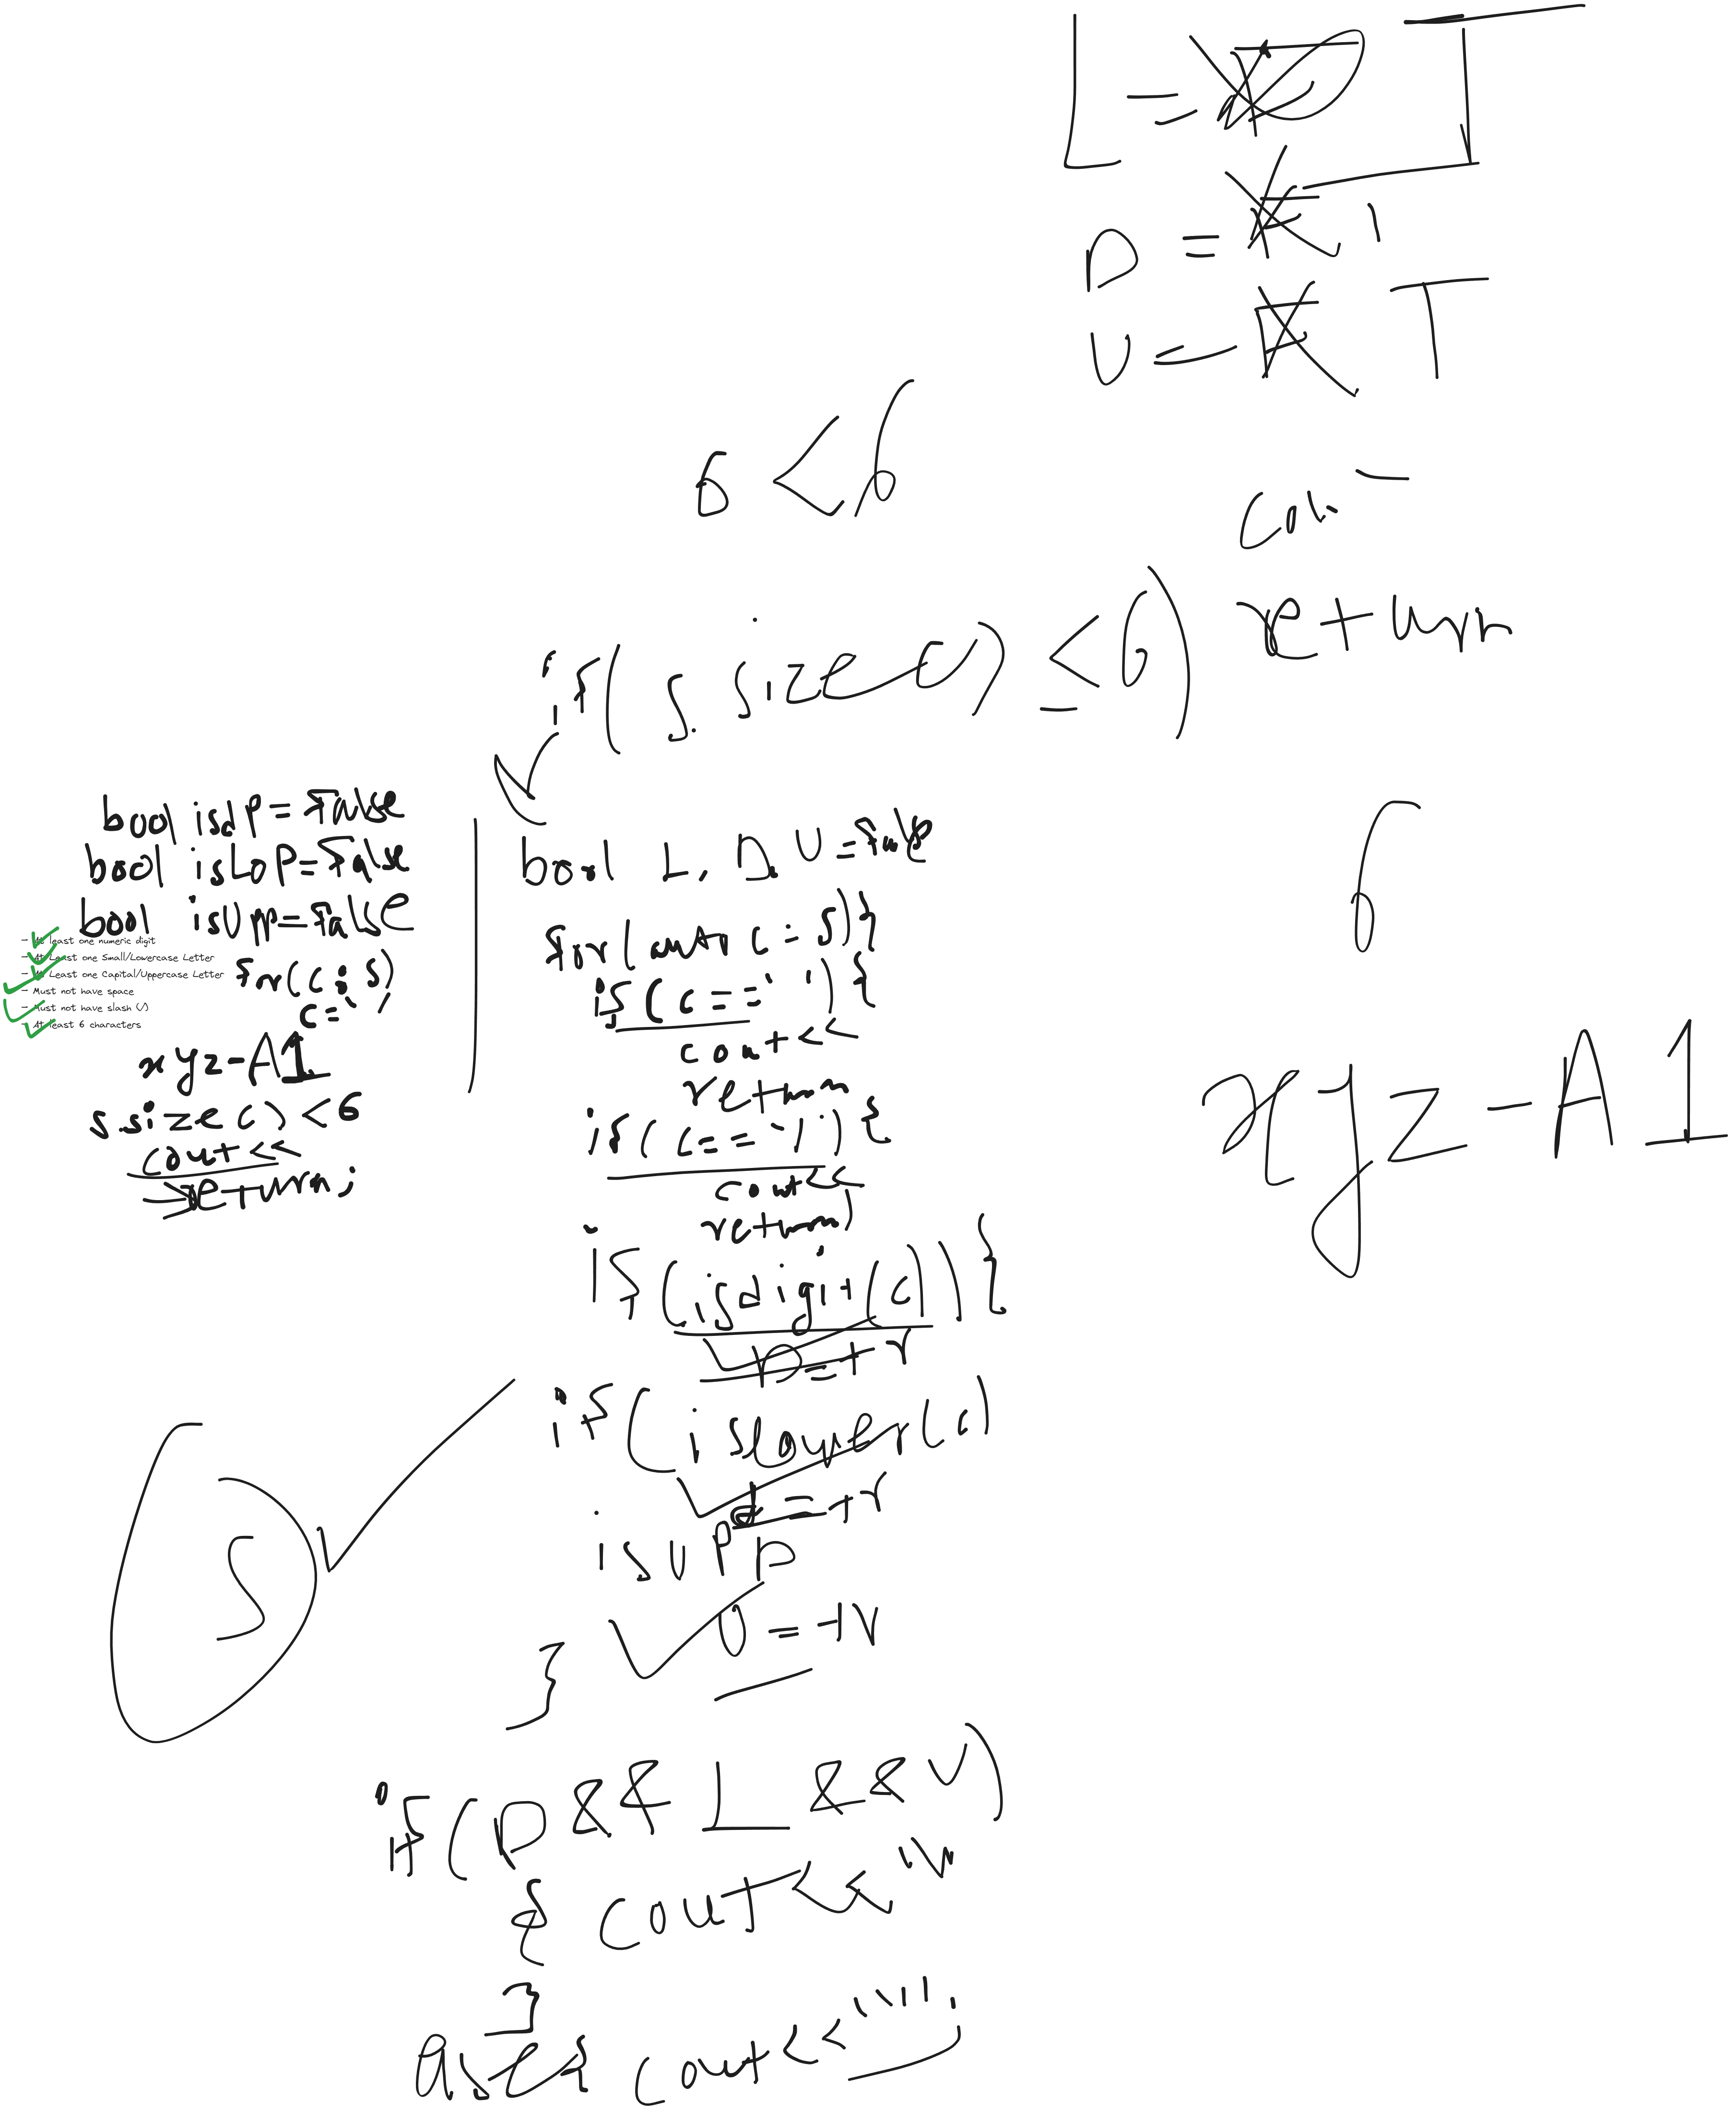 L = T
D =
U = T
6 < 6
cou
return
if ( s. size() < 6)
bool isdP = false
bool isLoP = false
bool isUp = false
- At least one numeric digit
- At Least one Small/Lowercase Letter
- At Least one Capital/Uppercase Letter
- Must not have space
- Must not have slash (/)
- At least 6 characters
for (c : s)
c = '
xyz-A1
s.size() < 6
cout <<
return;
bool L, D, U = false
for ( auto c : s) {
if ( c == ' ' ) {
cout <<
return
if ( c == '/' ) {
cout <<
return;
if ( isdigit (c) ) {
D = tr
if ( islower (c)
L = tr
isupp
U = tr
}
6
xyz-A1
S
if ( D && L && U)
{ cout << "
}
else { cout << " ";